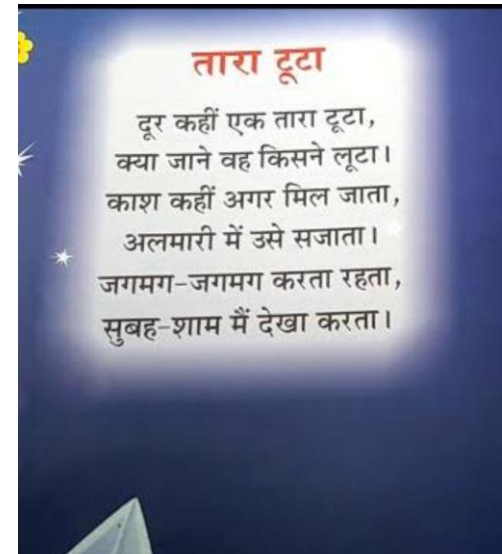 तारा टूटा
दूर कहीं एक तारा टूटा,
क्या जाने वह किसने लूटा।
काश कहीं अगर मिल जाता,
अलमारी में उसे सजाता।
जगमग-जगमग करता रहता,
सुबह-शाम मैं देखा करता।